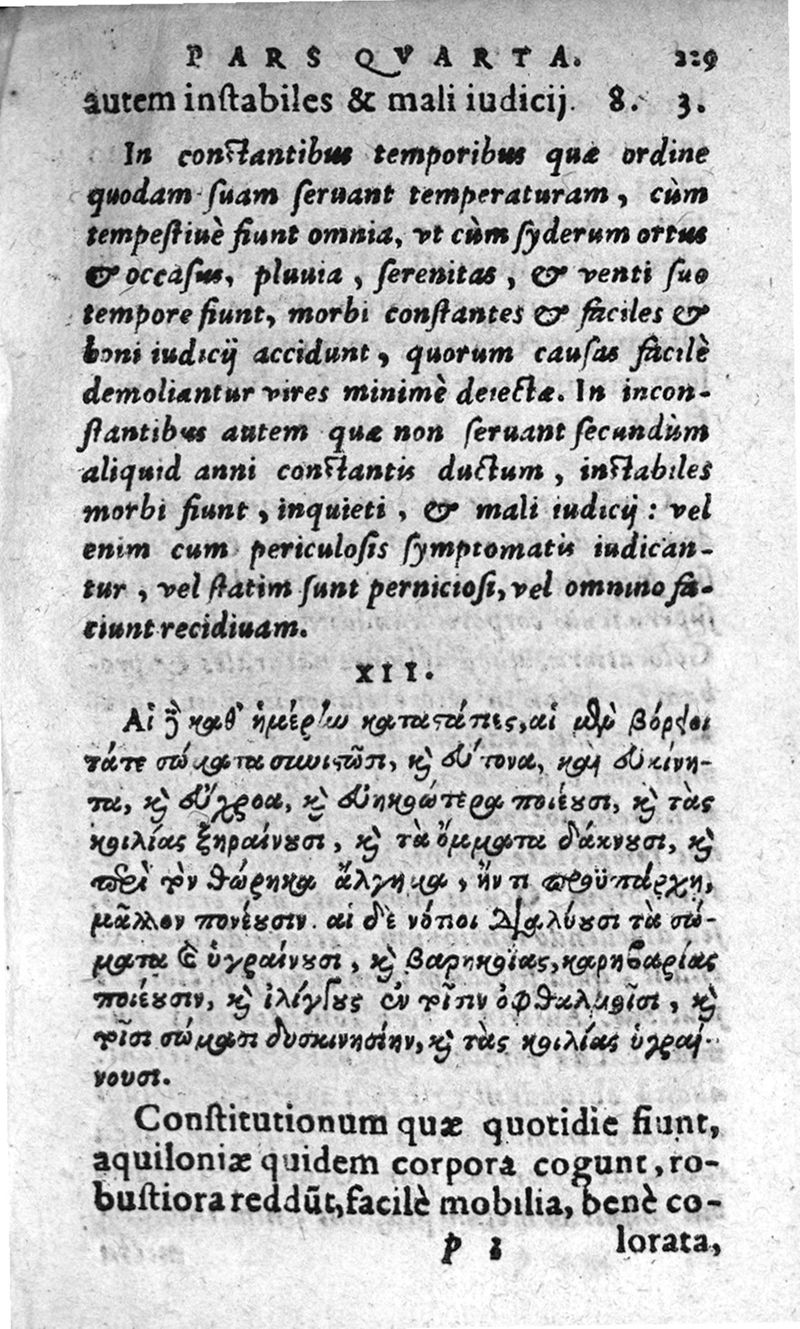 PARS QVARTA. 229
autem instabiles & mali iudicij. 8. 3.
In constantibus temporibus quæ ordine
quodam suam seruant temperaturam, cùm
tempestiuè fiunt omnia, vt cùm syderum ortus
& occasus, pluuia, serenitas, & venti suo
tempore fiunt, morbi constantes & faciles &
boni iudicij accidunt, quorum causas facilè
demoliantur vires minimè deiectæ. In incon-
stantibus autem quæ non seruant secundùm
aliquid anni constantis ductum, instabiles
morbi fiunt, inquieti, & mali iudicij: vel
enim cum periculosis symptomatis iudican-
tur, vel statim sunt perniciosi, vel omnino fa-
ciunt recidiuam.
XII.
Αἱ δὲ καθ' ἡμέρην καταστάσιες, αἱ μὲν βόρειοι
τάτε σώματα συνιστῶσι, καὶ εὔτονα, καὶ εὐκίνη-
τα, καὶ εὔχροα, καὶ εὐηκοώτερα ποιέουσι, καὶ τὰς
κοιλίας ξηραίνουσι, καὶ τὰ ὄμματα δάκνουσι, καὶ
περὶ τὸν θώρηκα ἄλγημα, ἤν τι προϋπάρχῃ,
μᾶλλον πονέουσιν. αἱ δὲ νότιοι διαλύουσι τὰ σώ-
ματα καὶ ὑγραίνουσι, καὶ βαρηκοΐας, καρηβαρίας
ποιέουσιν, καὶ ἰλίγγους ἐν τοῖσιν ὀφθαλμοῖσι, καὶ
τοῖσι σώμασι δυσκινησίην, καὶ τὰς κοιλίας ὑγραί-
νουσι.
Constitutionum quæ quotidie fiunt,
aquiloniæ quidem corpora cogunt, ro-
bustiora reddũt, facilè mobilia, benè co-
p lorata,